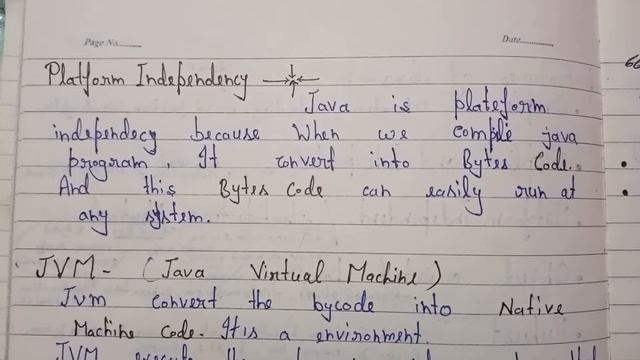 Page No.
Date
Platform Independency
Java is plateform
independecy because When we compile java
program. It convert into Bytes Code.
And this Bytes Code can easily run at
any system.
JVM- (Java Virtual Machine)
Jvm convert the bycode into Native
Machine Code. It is a environment.
JVM execute the